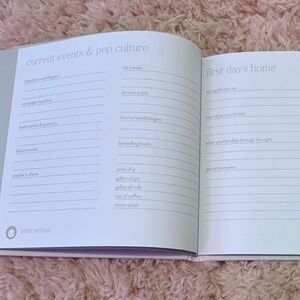 current events & pop culture
important world leaders
newspaper headlines
stock market & economy
fashion trends
popular tv shows
hit movies
famous actors
famous bands/singers
bestselling books
price of a
gallon of gas
gallon of milk
cup of coffee
movie ticket
your arrival
first days home
during the day we
how we put you to bed
when you first slept through the night
special memories